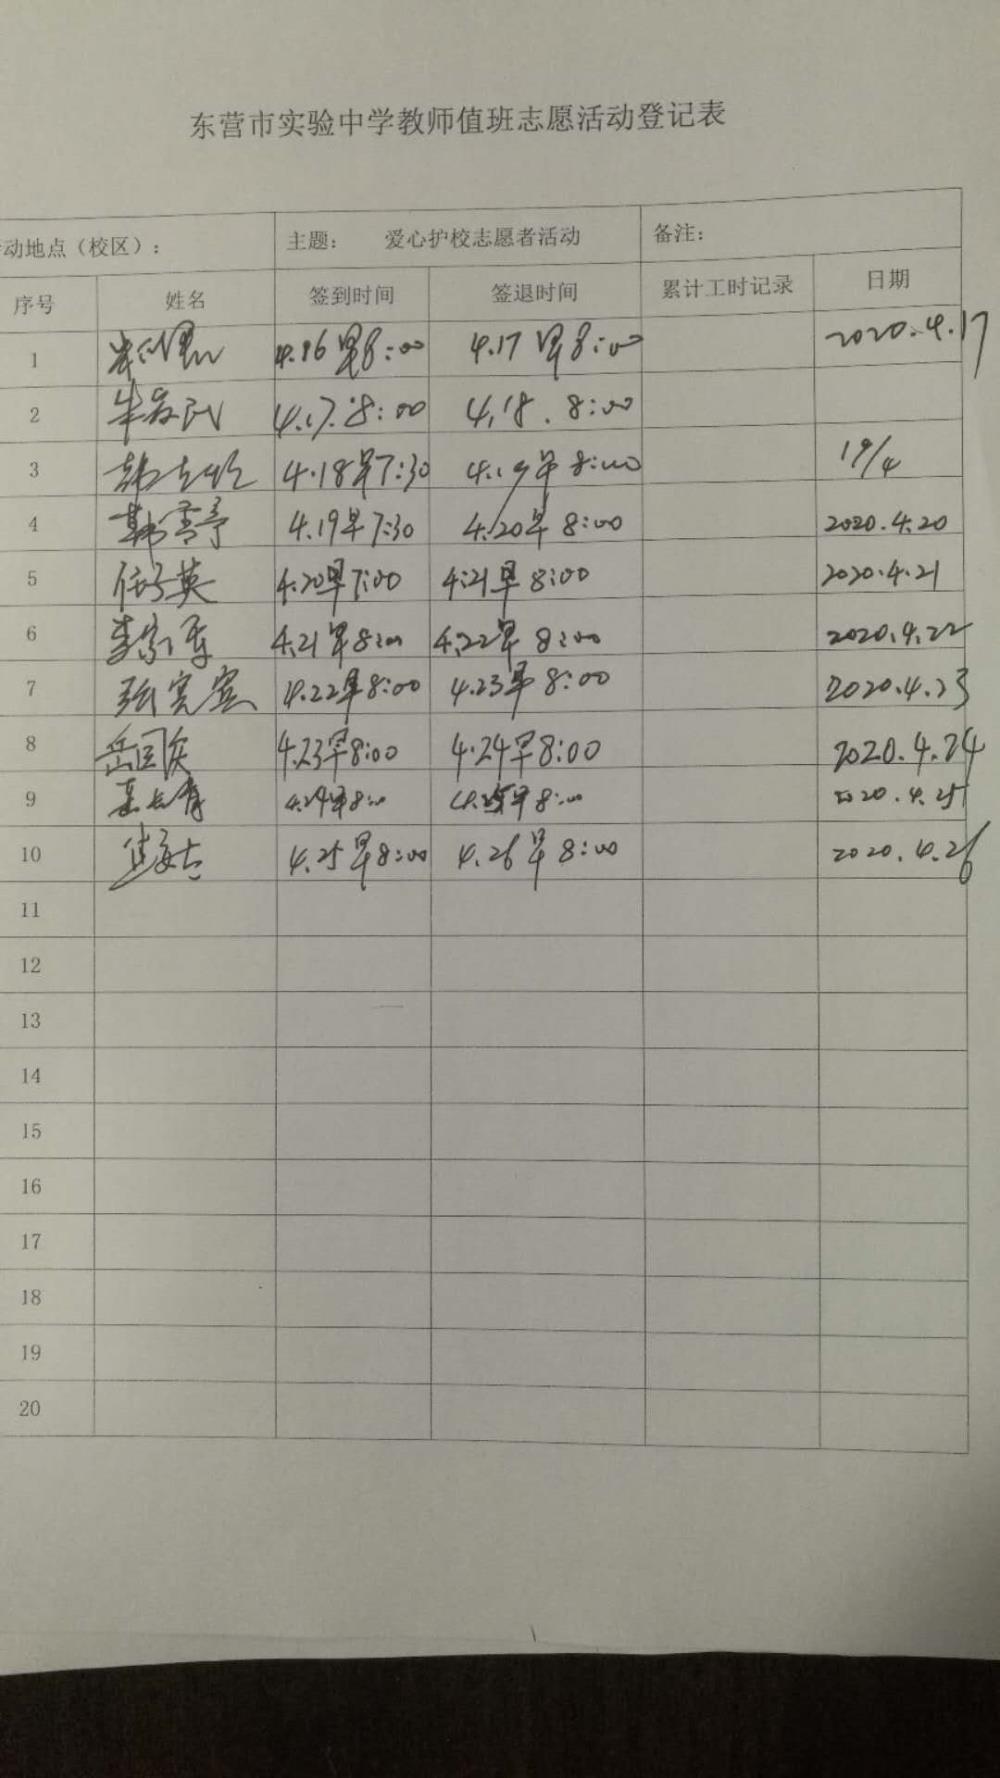 东营市实验中学教师值班志愿活动登记表
动地点（校区）： 主题： 爱心护校志愿者活动 备注：
序号 姓名 签到时间 签退时间 累计工时记录 日期
1 4.16早8:00 4.17早8:00 2020.4.17
2 4.17.8:00 4.18.8:00
3 4.18早7:30 4.19早8:00 19/4
4 韩雪亭 4.19早7:30 4.20早8:00 2020.4.20
5 任子英 4.20早7:00 4.21早8:00 2020.4.21
6 4.21早8:00 4.22早8:00 2020.4.22
7 张宪宾 4.22早8:00 4.23早8:00 2020.4.23
8 4.23早8:00 4.24早8:00 2020.4.24
9 4.24早8:00 4.25早8:00 2020.4.25
10 4.25早8:00 4.26早8:00 2020.4.26
11
12
13
14
15
16
17
18
19
20